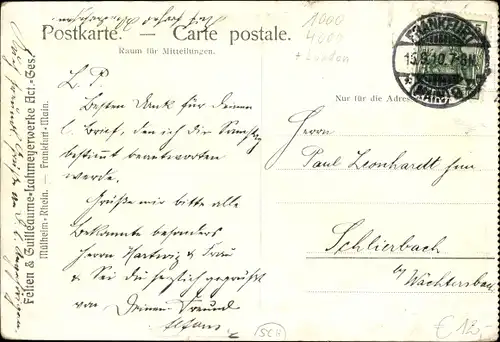 Postkarte. — Carte postale.
Raum für Mitteilungen.
Nur für die Adresse
1000
4000
+ London
FRANKFURT
15.9.10.7-8N.
(MAIN) 9
L. P.
Besten Dank für Deinen
l. Brief, den ich Dir Samstag
bestimmt beantworten
werde.
Grüße mir bitte alle
Bekannte besonders
Herrn Hartwig & Frau
& Sei Du herzlichst gegrüßt
von Deinem Freund
Alfons
Herrn
Paul Leonhardt jun.
Schlierbach
b/ Wächtersbach
Felten & Guilleaume-Lahmeyerwerke Act.-Ges.
Mülheim-Rhein. — Frankfurt-Main.
SCH
€ 12,-